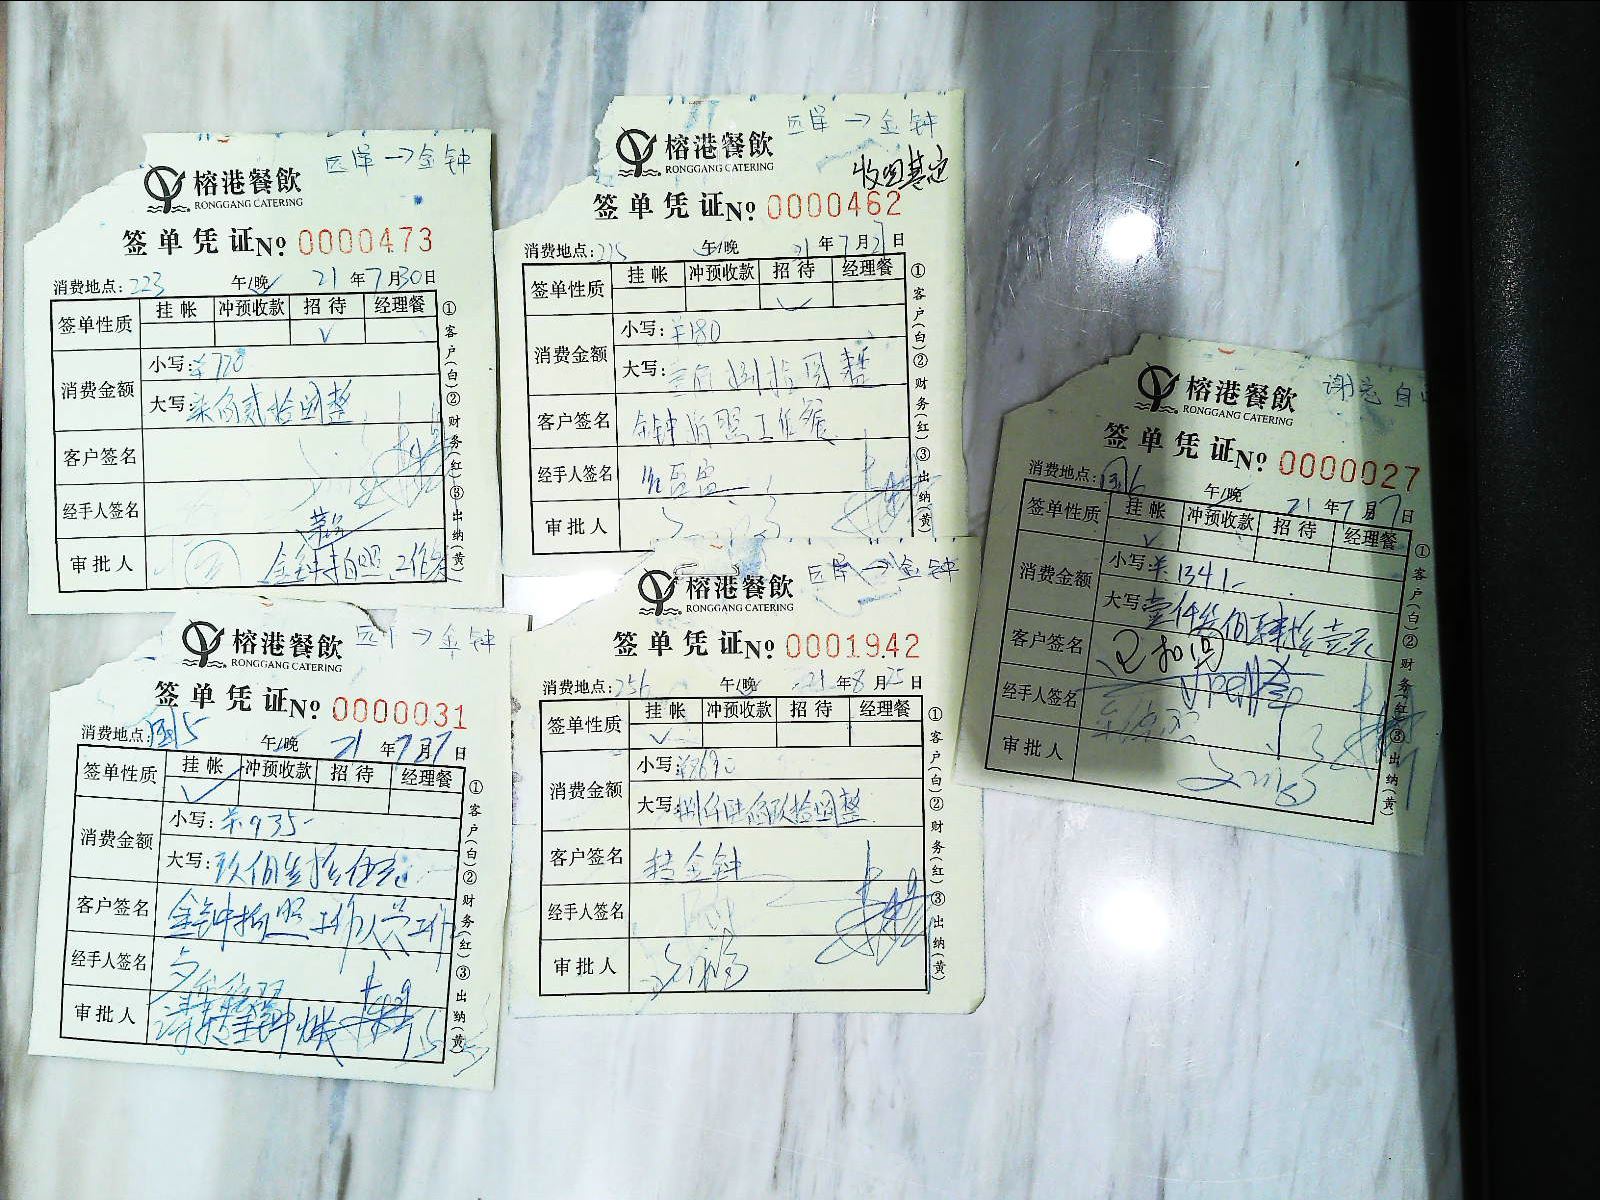 →金钟
榕港餐飲
RONGGANG CATERING
签单凭证 № 0000473
消费地点: 223 午/晚 21 年 7 月 30 日
签单性质 挂帐 冲预收款 招待 经理餐
√
消费金额
小写: ¥720
大写: 柒佰贰拾圆整
客户签名
经手人签名
审批人
①客户(白)②财务(红)③出纳(黄)
→金钟
榕港餐飲
RONGGANG CATERING
签单凭证 № 0000462
消费地点: 225 午/晚 21 年 7 月 27 日
签单性质 挂帐 冲预收款 招待 经理餐
√
消费金额
小写: ¥180
大写: 壹佰捌拾圆整
客户签名 金钟拍照工作餐
经手人签名
审批人
①客户(白)②财务(红)③出纳(黄)
→金钟
榕港餐飲
RONGGANG CATERING
签单凭证 № 0000031
消费地点: 午/晚 21 年 7 月 27 日
签单性质 挂帐 冲预收款 招待 经理餐
√
消费金额
小写: ¥935-
大写: 玖佰叁拾伍元
客户签名 金钟拍照工作人员工作
经手人签名
审批人
①客户(白)②财务(红)③出纳(黄)
→金钟
榕港餐飲
RONGGANG CATERING
签单凭证 № 0001942
消费地点: 256 午/晚 21 年 8 月 25 日
签单性质 挂帐 冲预收款 招待 经理餐
√
消费金额
小写: ¥8690
大写: 捌仟陆佰玖拾圆整
客户签名 转金钟
经手人签名
审批人
①客户(白)②财务(红)③出纳(黄)
榕港餐飲
RONGGANG CATERING
签单凭证 № 0000027
消费地点: 午/晚 21 年 7 月 7 日
签单性质 挂帐 冲预收款 招待 经理餐
√
消费金额
小写: ¥1341-
大写: 壹仟叁佰肆拾壹元
客户签名
经手人签名
审批人
①客户(白)②财务(红)③出纳(黄)